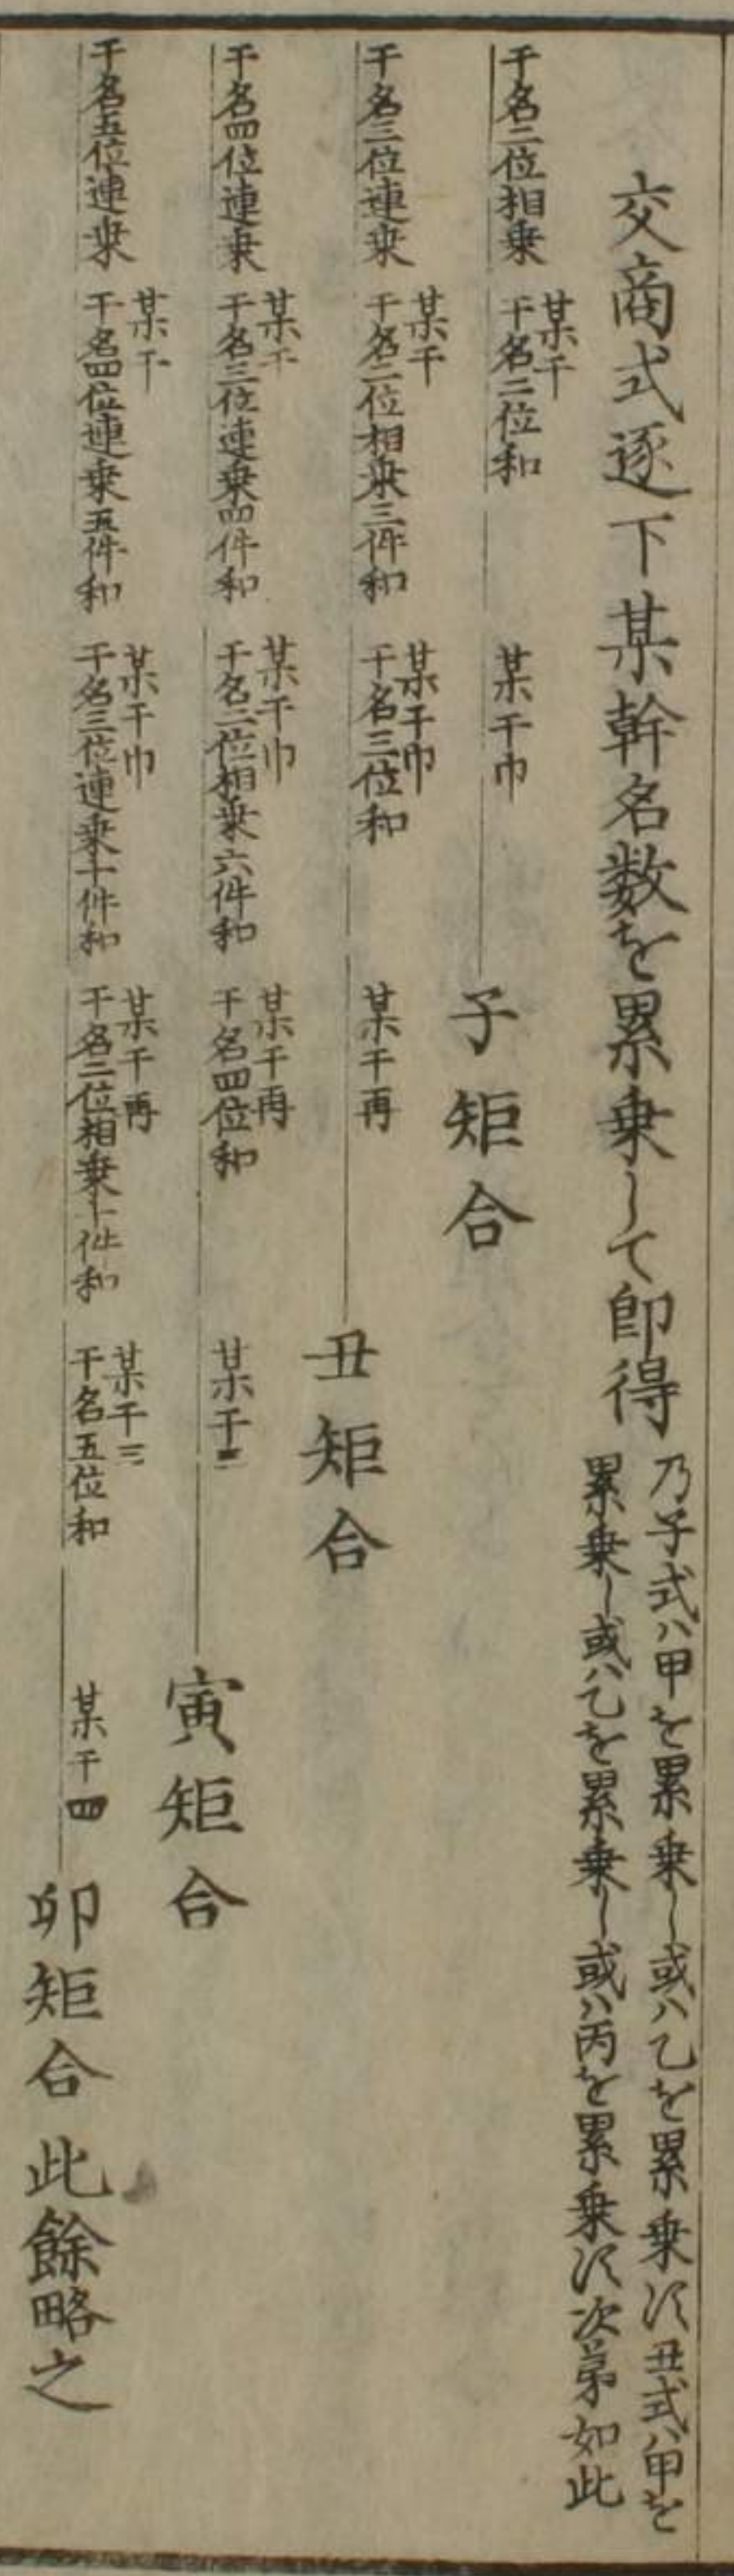 交商式逐下某幹名数を累乗して即得
乃子式ハ甲を累乗し或ハ乙を累乗次丑式ハ甲を
累乗し或ハ乙を累乗し或ハ丙を累乗次次第如此
干名二位相乗
某干
干名二位和
某干巾
子矩合
干名三位連乗
某干
干名二位相乗三件和
某干巾
干名三位和
某干再
丑矩合
干名四位連乗
某干
干名三位連乗四件和
某干巾
干名二位相乗六件和
某干再
干名四位和
某干三
寅矩合
干名五位連乗
某干
干名四位連乗五件和
某干巾
干名三位連乗十件和
某干再
干名二位相乗十件和
某干三
干名五位和
某干四
卯矩合 此餘略之